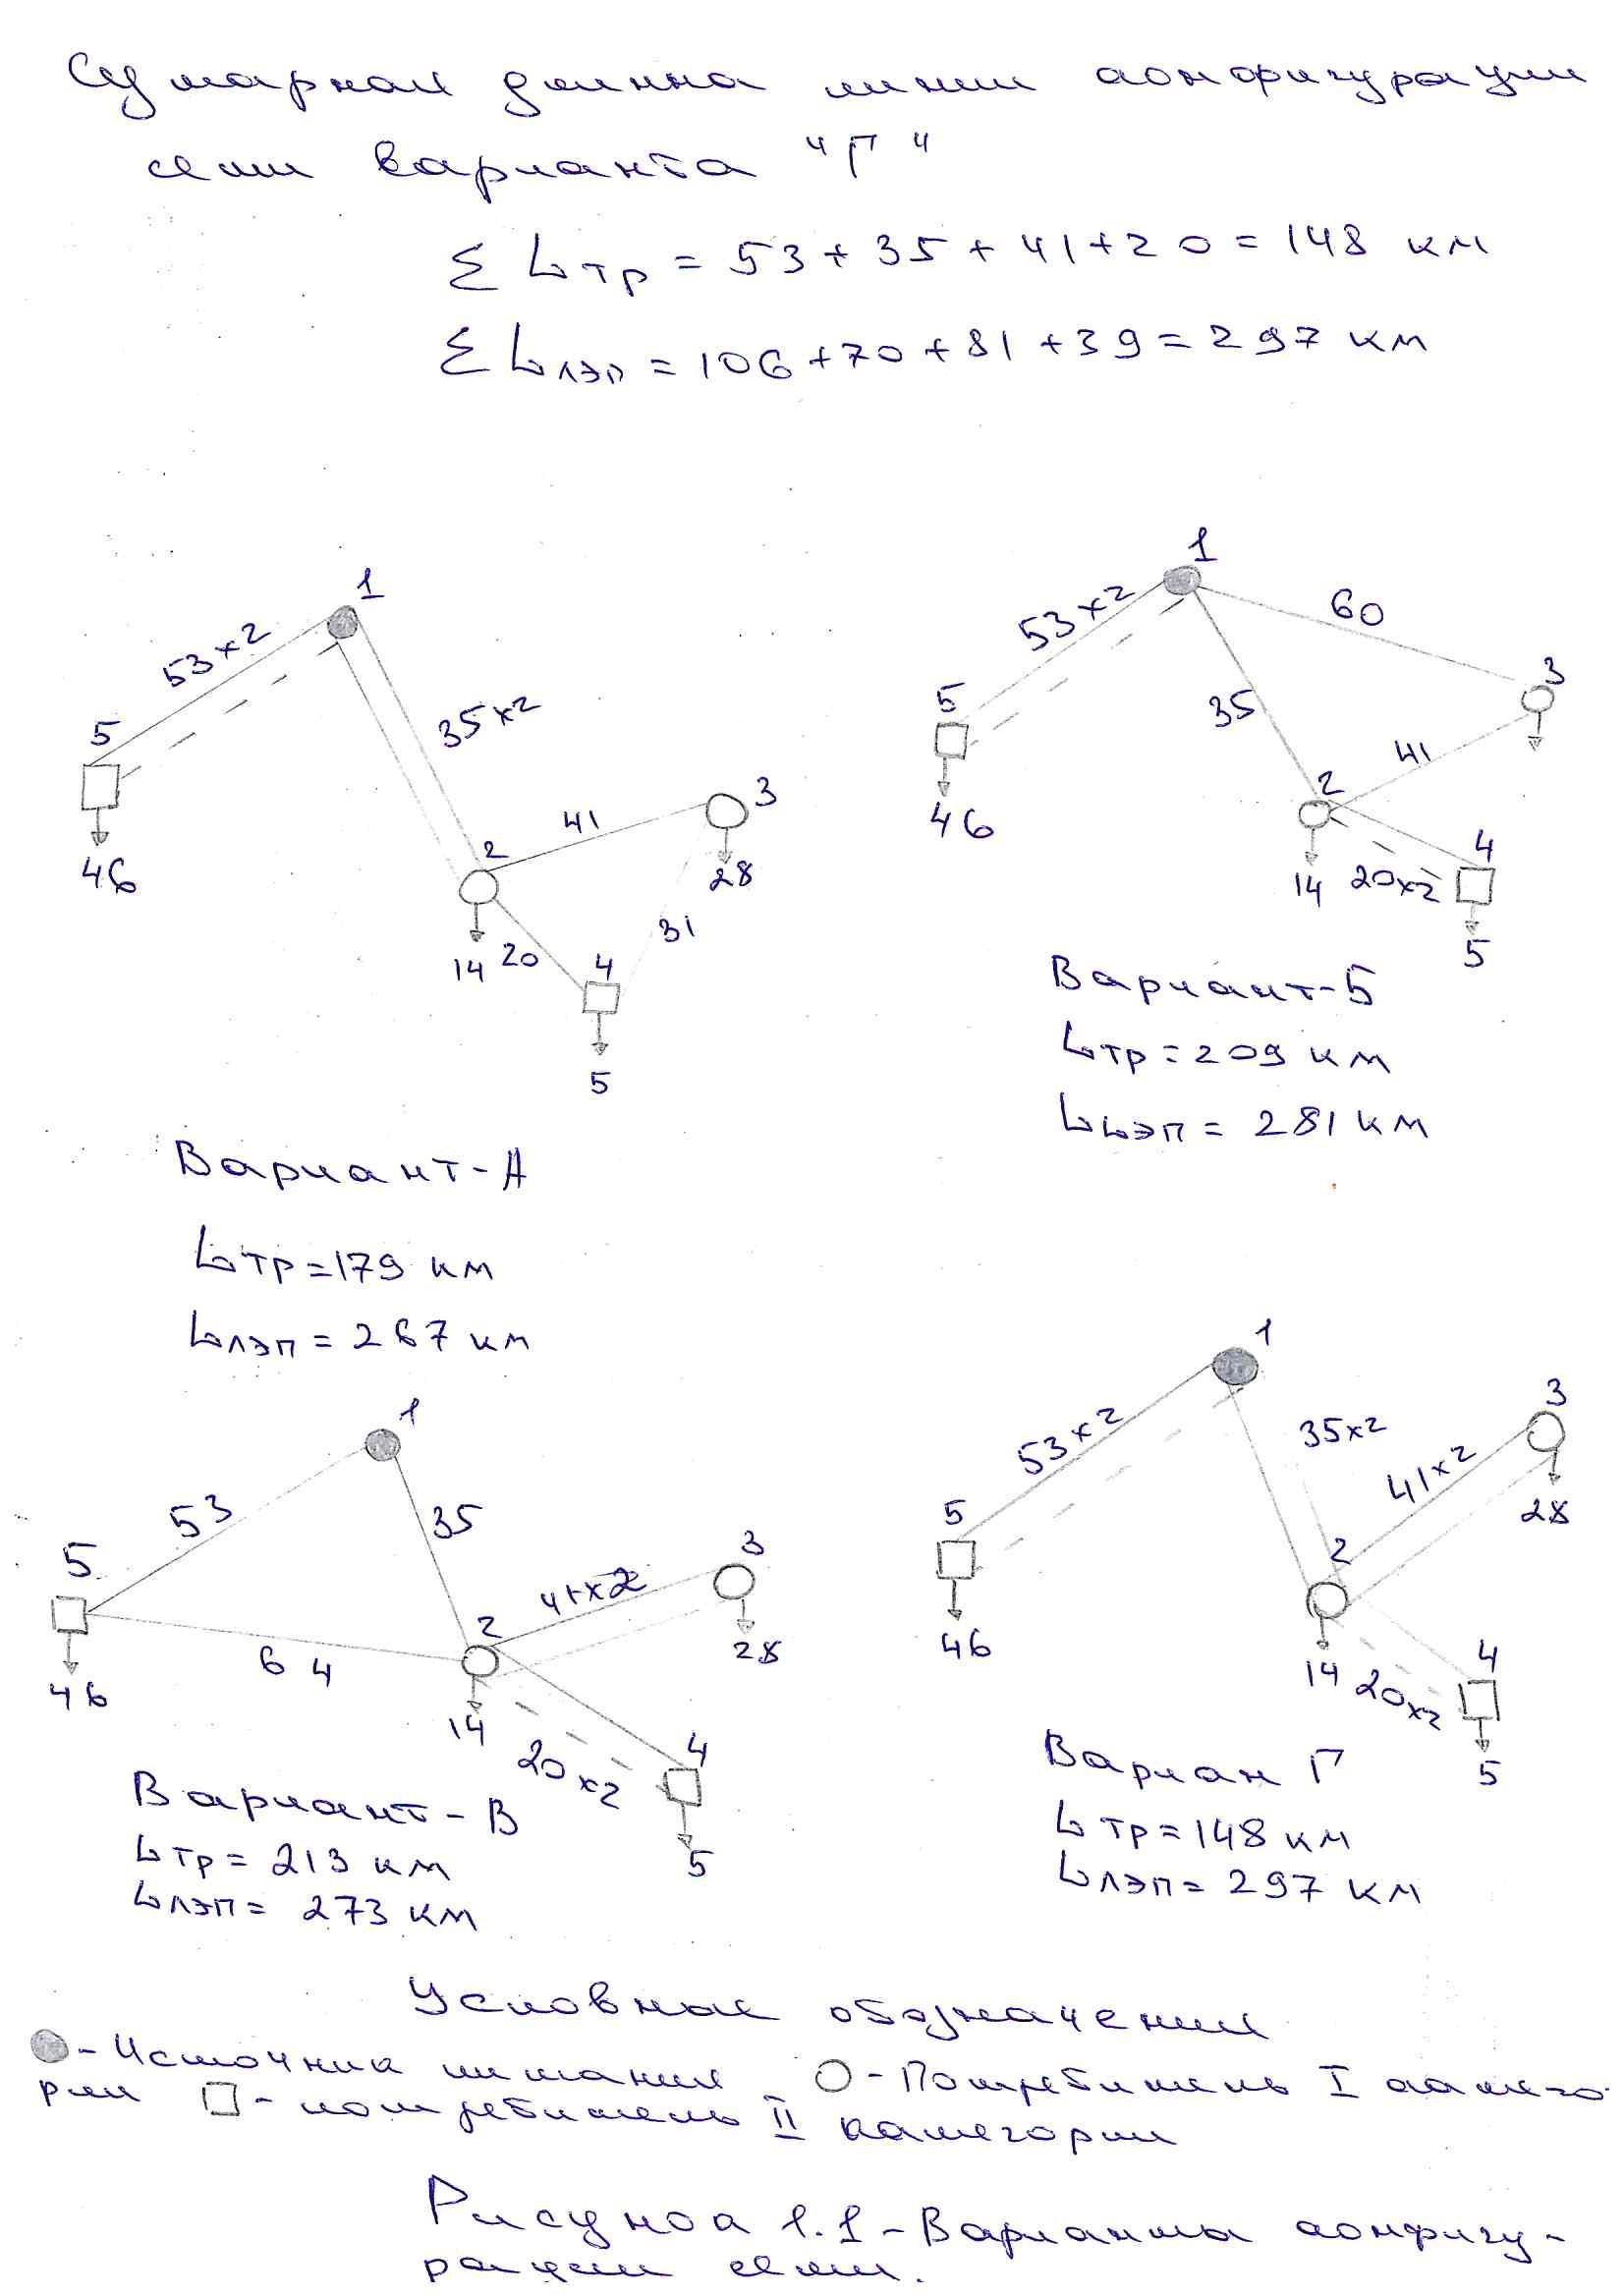 Сумарная длинна линии конфигурации
сети варианта "Г"
Σ Lтр = 53 + 35 + 41 + 20 = 148 км
Σ Lлэп = 106 + 70 + 81 + 39 = 297 км
1
53×2
35×2
5
46
2
41
3
28
14
20
31
4
5
Вариант-А
Lтр = 179 км
Lлэп = 267 км
1
53×2
60
3
5
46
35
41
2
14
20×2
4
5
Вариант-Б
Lтр = 209 км
Lлэп = 281 км
1
53
35
5
46
64
2
41×2
3
28
14
20×2
4
5
Вариант-В
Lтр = 213 км
Lлэп = 273 км
1
53×2
35×2
41×2
3
28
5
46
2
14
20×2
4
5
Вариан Г
Lтр = 148 км
Lлэп = 297 км
Условные обозначения
- Источник питания - Потребитель I катего-
рии - потребитель II категории
Рисунок 1.1 - Варианты конфигу-
рации сети.